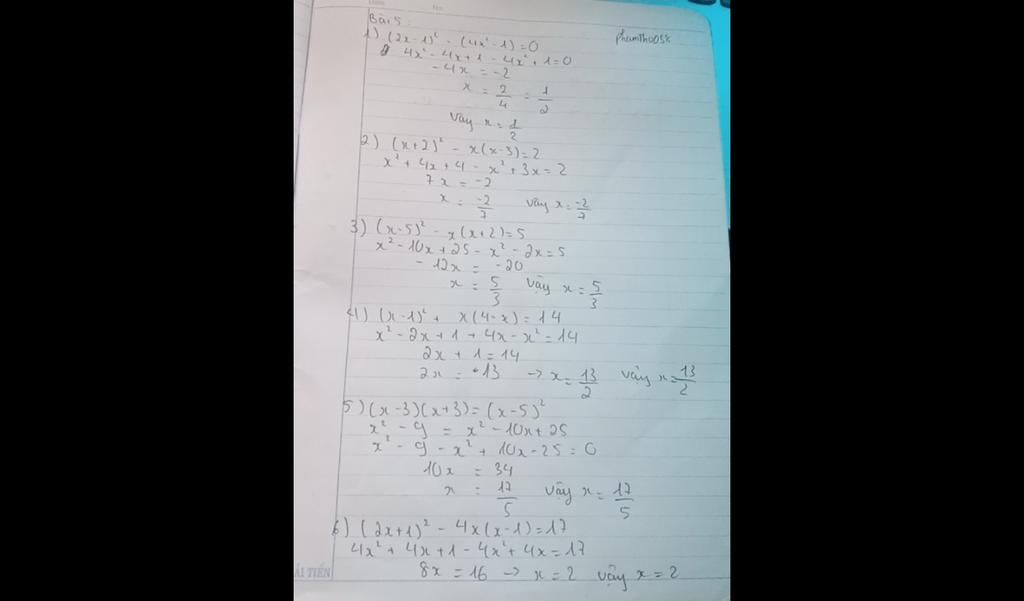 Bài 5:
phamthu05k
1) (2x-1)² - (4x²-1)=0
4x² - 4x+1 - 4x² + 1=0
-4x = -2
x = 2/4 = 1/2
vậy x = 1/2
2) (x+2)² - x(x-3)=2
x² + 4x+4 - x² + 3x = 2
7x = -2
x = -2/7 vậy x = -2/7
3) (x-5)² - x(x+2)=5
x² - 10x + 25 - x² - 2x = 5
- 12x = -20
x = 5/3 vậy x = 5/3
4) (x-1)² + x(4-x) = 14
x² - 2x + 1 + 4x - x² = 14
2x + 1 = 14
2x = 13 → x = 13/2 vậy x = 13/2
5) (x-3)(x+3) = (x-5)²
x² - 9 = x² - 10x + 25
x² - 9 - x² + 10x - 25 = 0
10x = 34
x = 17/5 vậy x = 17/5
6) (2x+1)² - 4x(x-1)=17
4x² + 4x + 1 - 4x² + 4x = 17
8x = 16 → x = 2 vậy x = 2
ẢI TIẾN